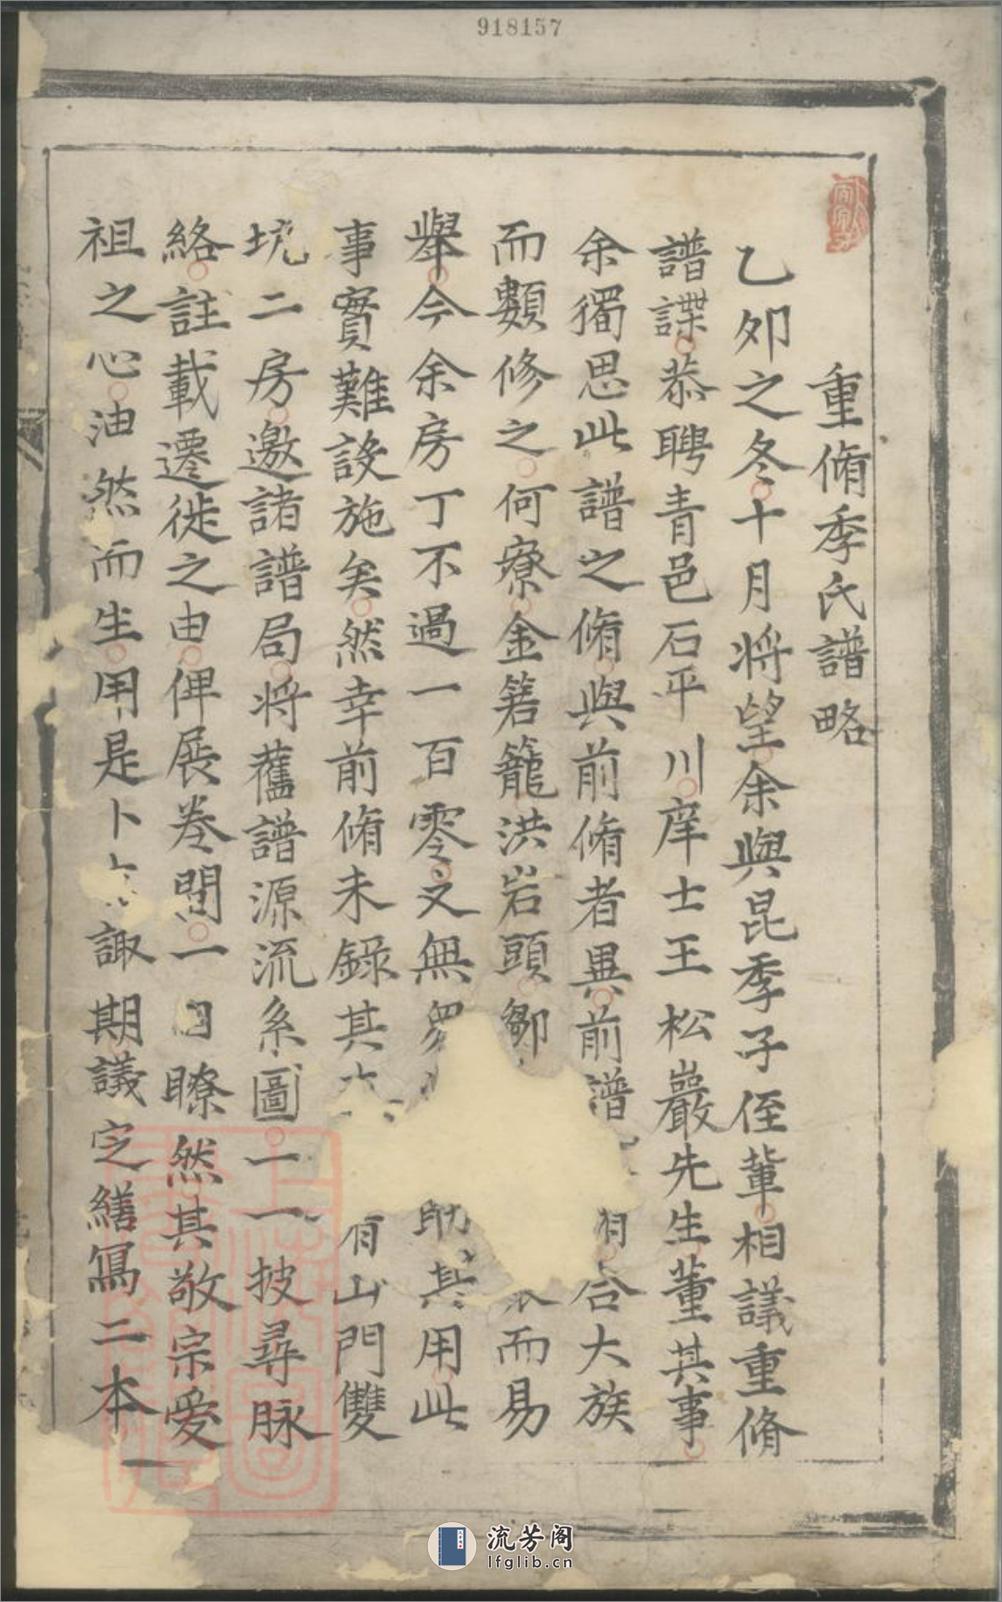 918157
重脩季氏譜略
乙夘之冬十月將望余與昆季子侄輩相議重脩
譜諜恭聘青邑石平川庠士王松巖先生董其事
余獨思此譜之脩與前脩者異前譜合大族
而類修之何寮金箬籠洪岩頭鄒而易
舉今余房丁不過一百零又無助其用此
事實難設施矣然幸前脩未錄其有山門雙
坑二房邀諸譜局將舊譜源流系圖一一披尋脉
絡註載遷徙之由俾展卷間一目瞭然其敬宗愛
祖之心油然而生用是卜諏期議定繕寫二本一
流芳阁
lfglib.cn